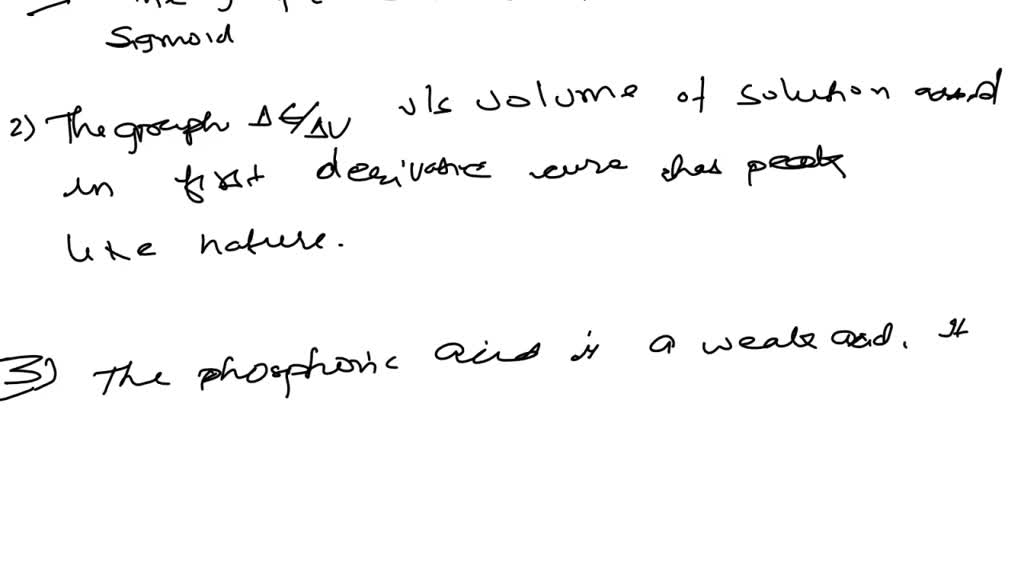 Sigmoid
2) The graph ΔE/ΔV v/s volume of solution
in first derivative curve has peak
like nature.
3) The phosphoric acid is a weak acid. It